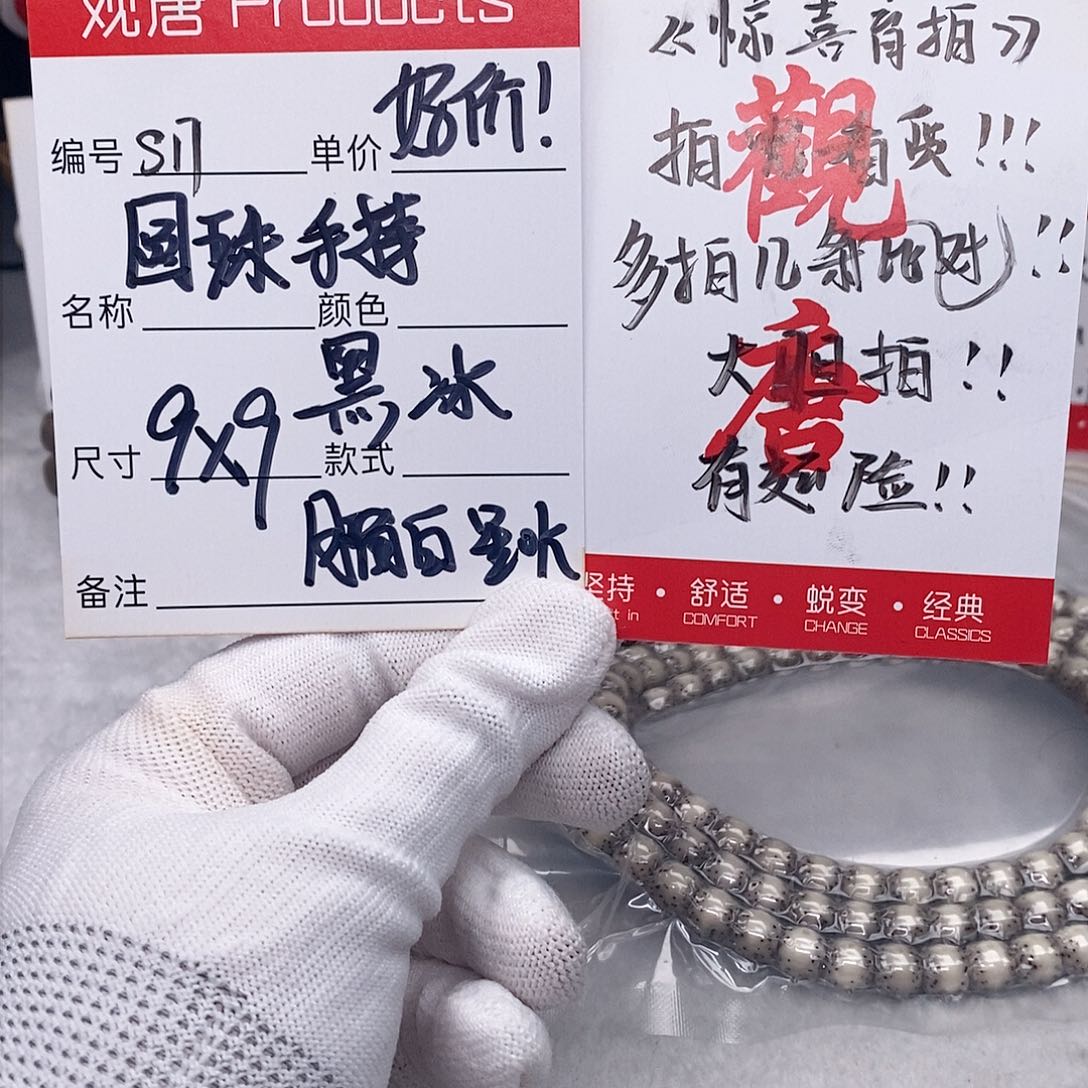 观唐 Products
编号 S17 单价 好价!
圆珠手持
名称 颜色
黑冰
尺寸 9x9 款式
脂白 冰
备注
《惊喜盲拍》
拍 有 !!!
多拍几条比对!!
大胆拍!!
有 险!!
觀
唐
坚持 · 舒适 · 蜕变 · 经典
COMFORT CHANGE CLASSICS